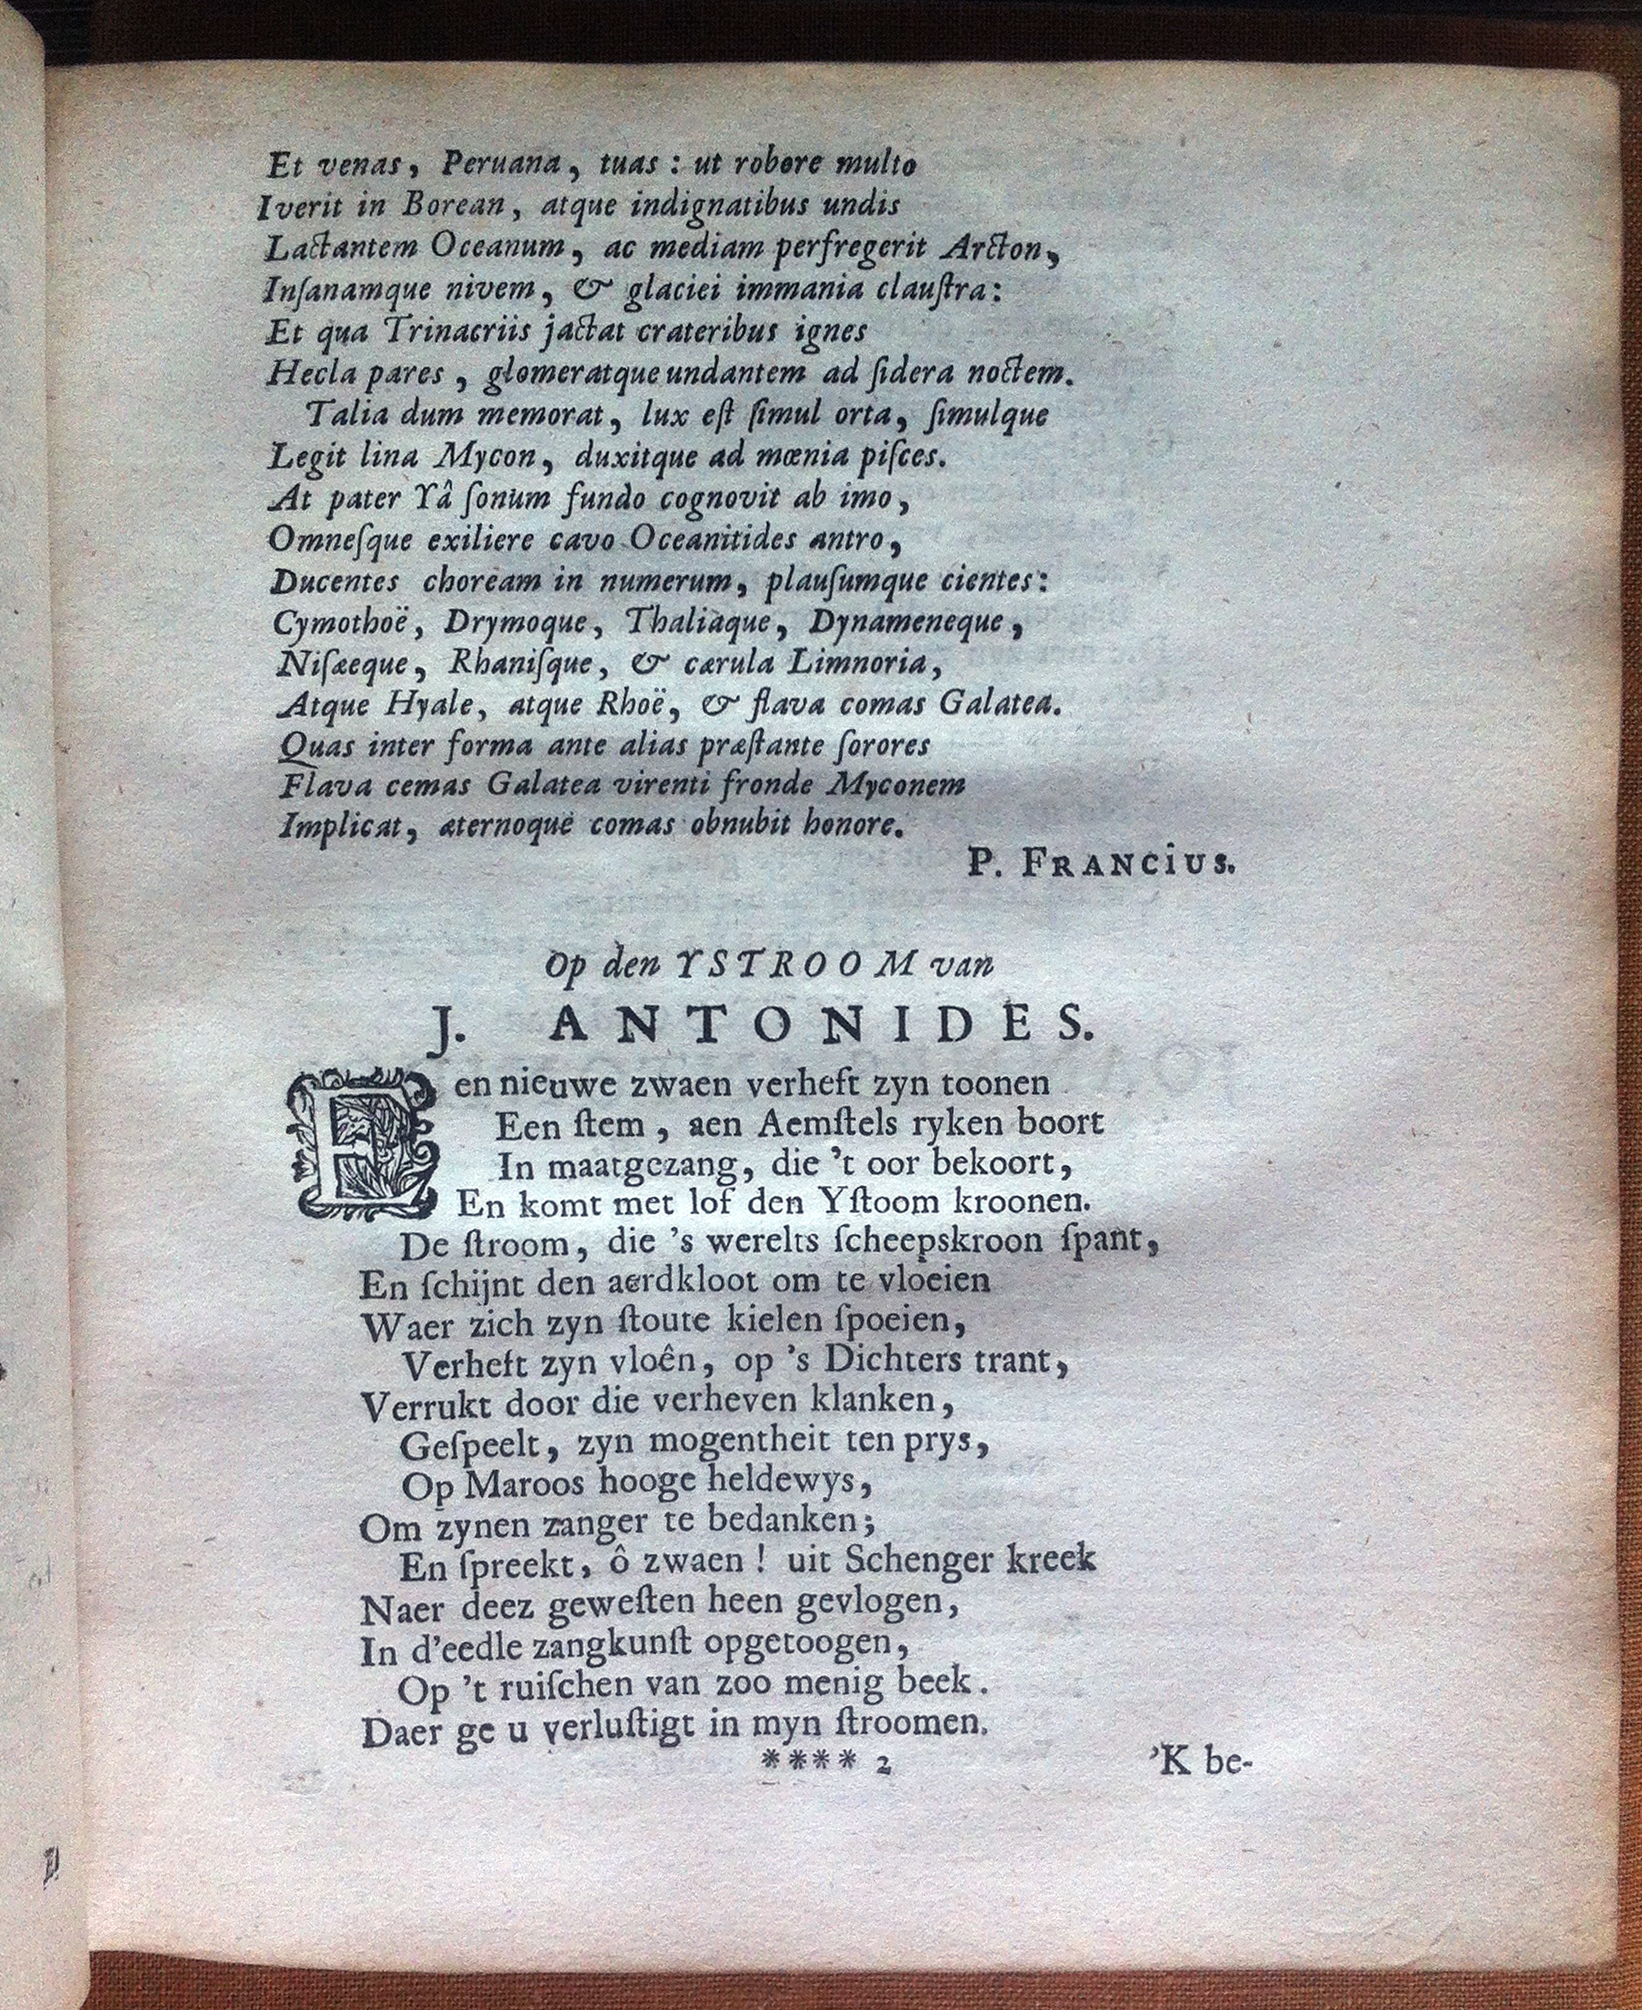 Et venas, Peruana, tuas : ut robore multo
Iverit in Borean, atque indignatibus undis
Lactantem Oceanum, ac mediam perfregerit Arcton,
Inſanamque nivem, & glaciei immania clauſtra:
Et qua Trinacriis jactat crateribus ignes
Hecla pares, glomeratque undantem ad ſidera noctem.
Talia dum memorat, lux eſt ſimul orta, ſimulque
Legit lina Mycon, duxitque ad mœnia piſces.
At pater Yâ ſonum fundo cognovit ab imo,
Omneſque exiliere cavo Oceanitides antro,
Ducentes choream in numerum, plauſumque cientes:
Cymothoë, Drymoque, Thaliaque, Dynameneque,
Niſæeque, Rhaniſque, & cærula Limnoria,
Atque Hyale, atque Rhoë, & flava comas Galatea.
Quas inter forma ante alias præſtante ſorores
Flava cemas Galatea virenti fronde Myconem
Implicat, æternoque comas obnubit honore.
P. FRANCIUS.
Op den YSTROOM van
J. ANTONIDES.
Een nieuwe zwaen verheft zyn toonen
Een ſtem, aen Aemſtels ryken boort
In maatgezang, die 't oor bekoort,
En komt met lof den Yſtoom kroonen.
De ſtroom, die 's werelts ſcheepskroon ſpant,
En ſchijnt den aerdkloot om te vloeien
Waer zich zyn ſtoute kielen ſpoeien,
Verheft zyn vloên, op 's Dichters trant,
Verrukt door die verheven klanken,
Geſpeelt, zyn mogentheit ten prys,
Op Maroos hooge heldewys,
Om zynen zanger te bedanken;
En ſpreekt, ô zwaen ! uit Schenger kreek
Naer deez geweſten heen gevlogen,
In d'eedle zangkunſt opgetoogen,
Op 't ruiſchen van zoo menig beek.
Daer ge u verluſtigt in myn ſtroomen.
**** 2 'K be-